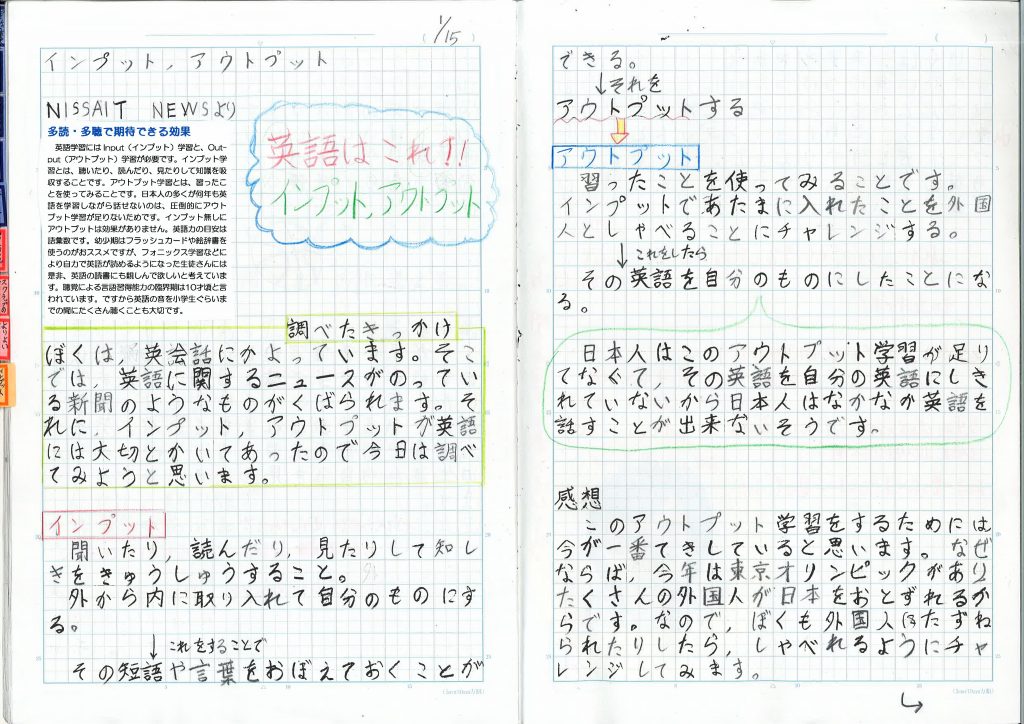 1/15
インプット,アウトプット
NISSAIT NEWSより
多読・多聴で期待できる効果
英語学習には Input(インプット)学習と、Out-
put(アウトプット)学習が必要です。インプット学
習とは、聴いたり、読んだり、見たりして知識を吸
収することです。アウトプット学習とは、習ったこ
とを使ってみることです。日本人の多くが何年も英
語を学習しながら話せないのは、圧倒的にアウト
プット学習が足りないためです。インプット無しに
アウトプットは効果がありません。英語力の目安は
語彙数です。幼少期はフラッシュカードや絵辞書を
使うのがおススメですが、フォニックス学習などに
より自力で英語が読めるようになった生徒さんには
是非、英語の読書にも親しんで欲しいと考えていま
す。聴覚による言語習得能力の臨界期は10才頃と言
われています。ですから英語の音を小学生ぐらいま
での間にたくさん聴くことも大切です。
英語はこれ!!
インプット,アウトプット
調べたきっかけ
ぼくは,英会話にかよっています。そこ
では,英語に関するニュースがのってい
る新聞のようなものがくばられます。そ
れに,インプット,アウトプットが英語
には大切とかいてあったので今日は調べ
てみようと思います。
インプット
聞いたり,読んだり,見たりして知し
きをきゅうしゅうすること。
外から内に取り入れて自分のものにす
る。
↓これをすることで
その短語や言葉をおぼえておくことが
できる。
↓それを
アウトプットする
アウトプット
習ったことを使ってみることです。
インプットであたまに入れたことを外国
人としゃべることにチャレンジする。
↓これをしたら
その英語を自分のものにしたことにな
る。
日本人はこのアウトプット学習が足り
てなくて,その英語を自分の英語にしき
れていないから日本人はなかなか英語を
話すことが出来ないそうです。
感想
このアウトプット学習をするためには
今が一番てきしていると思います。なぜ
ならば,今年は東京オリンピックがあり
たくさんの外国人が日本をおとずれるか
らです。なので,ぼくも外国人にたずね
られたりしたら,しゃべれるようにチャ
レンジしてみます。